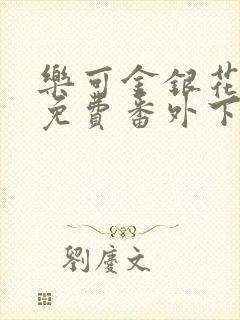 樂可金銀花
免費番外下
劉慶文